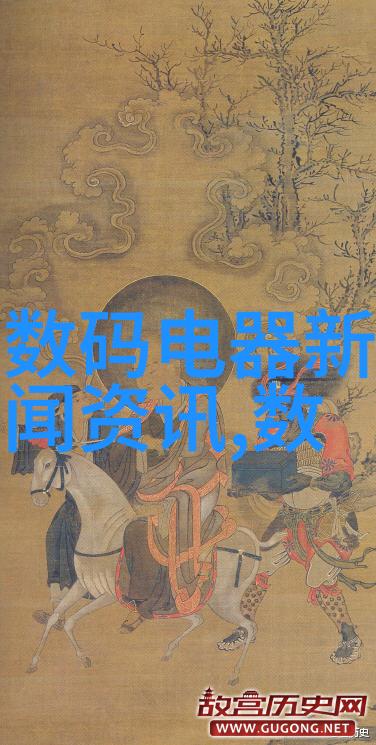 数码电器新
闻资讯,数
故宫历史网
WWW.GUGONG.NET
历史